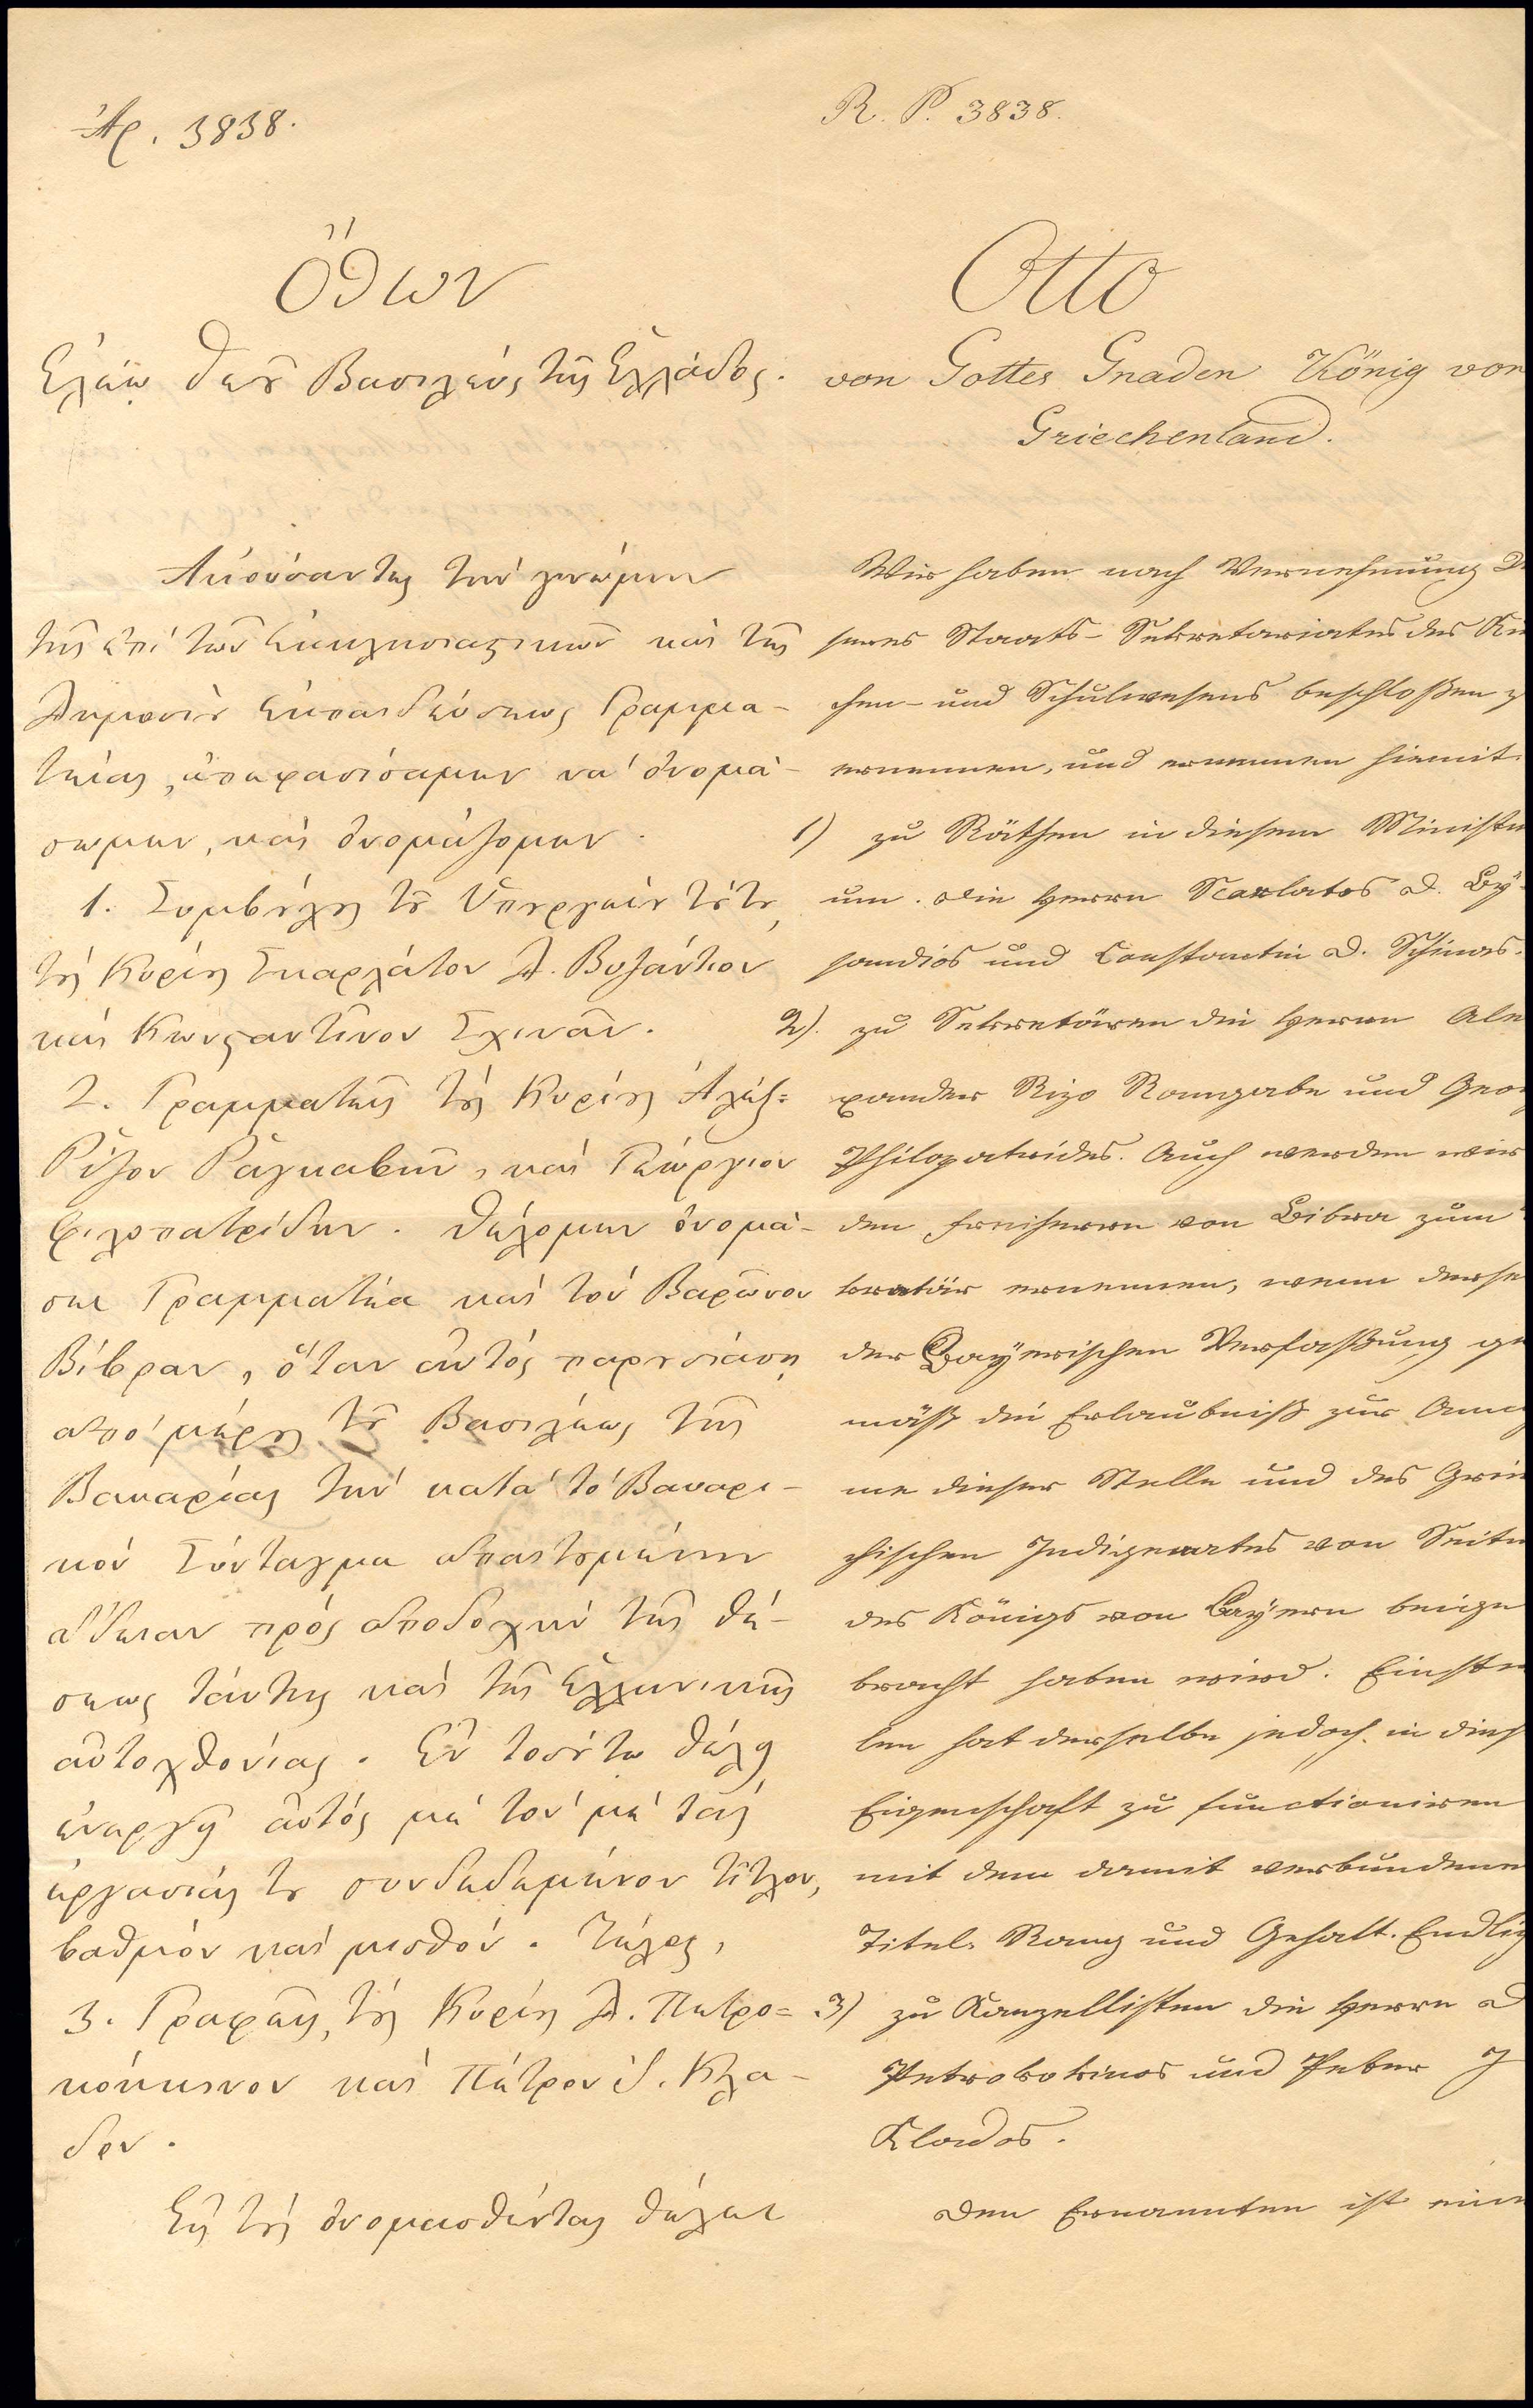 Ἀρ. 3838.
Ὄθων
Ἐλέῳ Θεοῦ Βασιλεύς τῆς Ἑλλάδος.
Ἀκούσαντες τήν γνώμην
τῆς ἐπί τῶν Ἐκκλησιαστικῶν καί τῆς
Δημοσίου Ἐκπαιδεύσεως Γραμμα-
τείας, ἀπεφασίσαμεν νά ὀνομά-
σωμεν, καί ὀνομάζομεν.
1. Συμβούλους τοῦ Ὑπουργείου τούτου,
τούς Κυρίους Σκαρλάτον Δ. Βυζάντιον
καί Κωνσταντῖνον Σχινᾶν.
2. Γραμματεῖς τούς Κυρίους Ἀλέξ:
Ρίζον Ραγκαβῆν, καί Γεώργιον
Φιλοπατρίδην. Θέλομεν ὀνομά-
σει Γραμματέα καί τόν Βαρῶνον
Βίβραν, ὅταν αὐτός παρουσιάσῃ
ἀπό μέρους τοῦ Βασιλέως τῆς
Βαυαρίας τήν κατά τό Βαυαρι-
κόν Σύνταγμα ἀπαιτουμένην
ἄδειαν πρός ἀποδοχήν τῆς θέ-
σεως ταύτης καί τῆς Ἑλληνικῆς
αὐτοχθονίας. Ἐν τοσούτῳ θέλει
ἐνεργεῖ αὐτός μέ τόν μέ τάς
ἐργασίας του συνδεδεμένον τίτλον,
βαθμόν καί μισθόν. Τέλος,
3. Γραφεῖς, τούς Κυρίους Δ. Πετρο=
κόκκινον καί Πέτρον Ι. Κλά-
δον.
Εἰς τούς ὀνομασθέντας θέλει
R. P. 3838.
Otto
von Gottes Gnaden König von
Griechenland.
Wir haben nach Vernehmung Un
seres Staats-Sekretariates des Kir
chen- und Schulwesens beschloßen zu
ernennen, und ernennen hiemit.
1) zu Räthen in diesem Ministeri
um. die Herrn Scarlatos D. By-
sandios und Constantin D. Schinas.
2). zu Sekretären die Herrn Ale
xander Rizo Rangabe und Georg
Philopatrides. Auch werden wir
den Freiherrn von Bibra zum Se
kretär ernennen, wenn derselbe
der Bayerischen Verfaßung ge
mäß die Erlaubniß zur Annah
me dieser Stelle und des Grie
chischen Indigenates von Seiten
des Königs von Bayern beige
bracht haben wird. Einstwei
len hat derselbe jedoch in dieser
Eigenschaft zu functioniren
mit dem damit verbundenen
Titel, Rang und Gehalt. Endlich
3) zu Kanzellisten die Herrn D
Petrokokinos und Peter J
Klados.
Den Ernannten ist eine